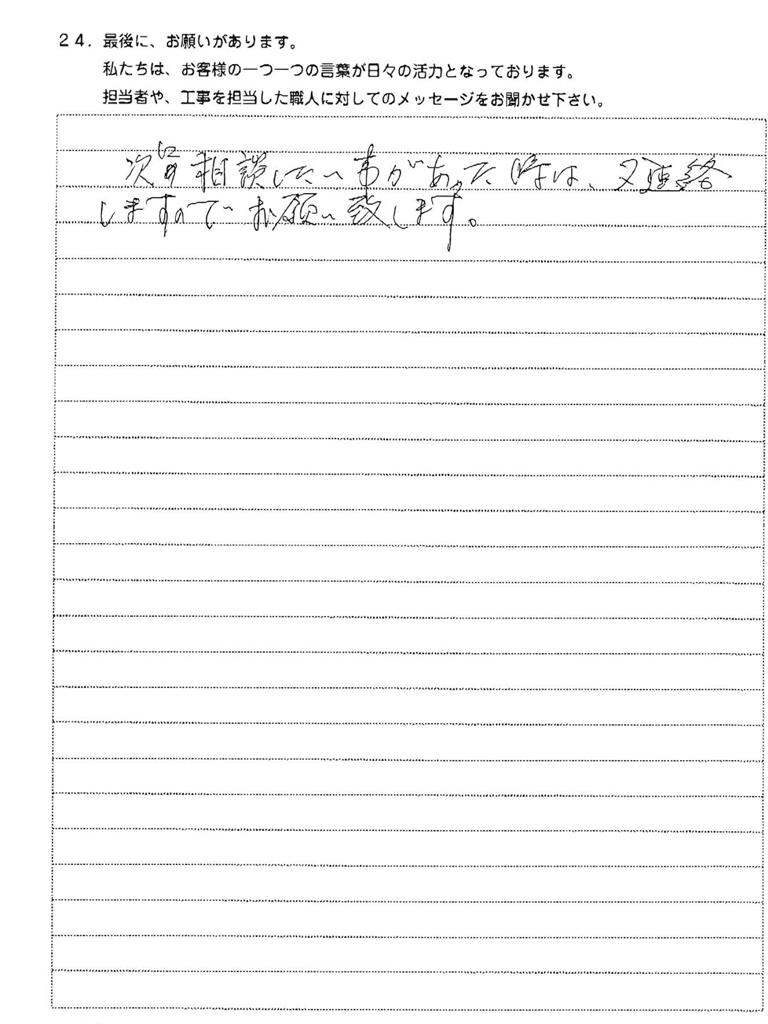 24. 最後に、お願いがあります。
私たちは、お客様の一つ一つの言葉が日々の活力となっております。
担当者や、工事を担当した職人に対してのメッセージをお聞かせ下さい。
次 相談したい事があった時は、又連絡
しますのでお願い致します。